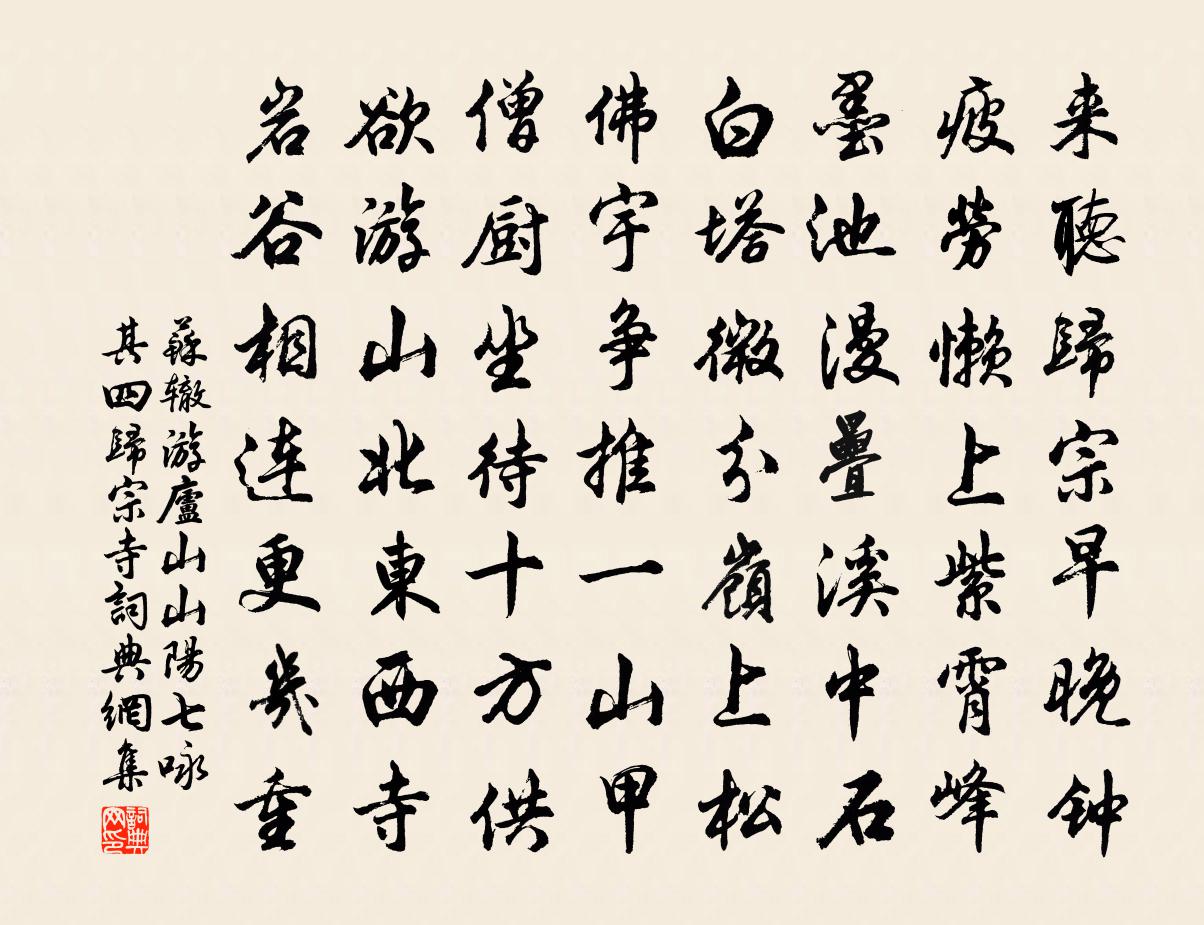 来聽歸宗早晚钟
疲勞懶上紫霄峰
墨池漫疊溪中石
白塔微分嶺上松
佛宇争推一山甲
僧厨坐待十方供
欲游山北東西寺
岩谷相连更幾重
蘇辙游廬山山陽七咏
其四歸宗寺詞典網集
詞典网印